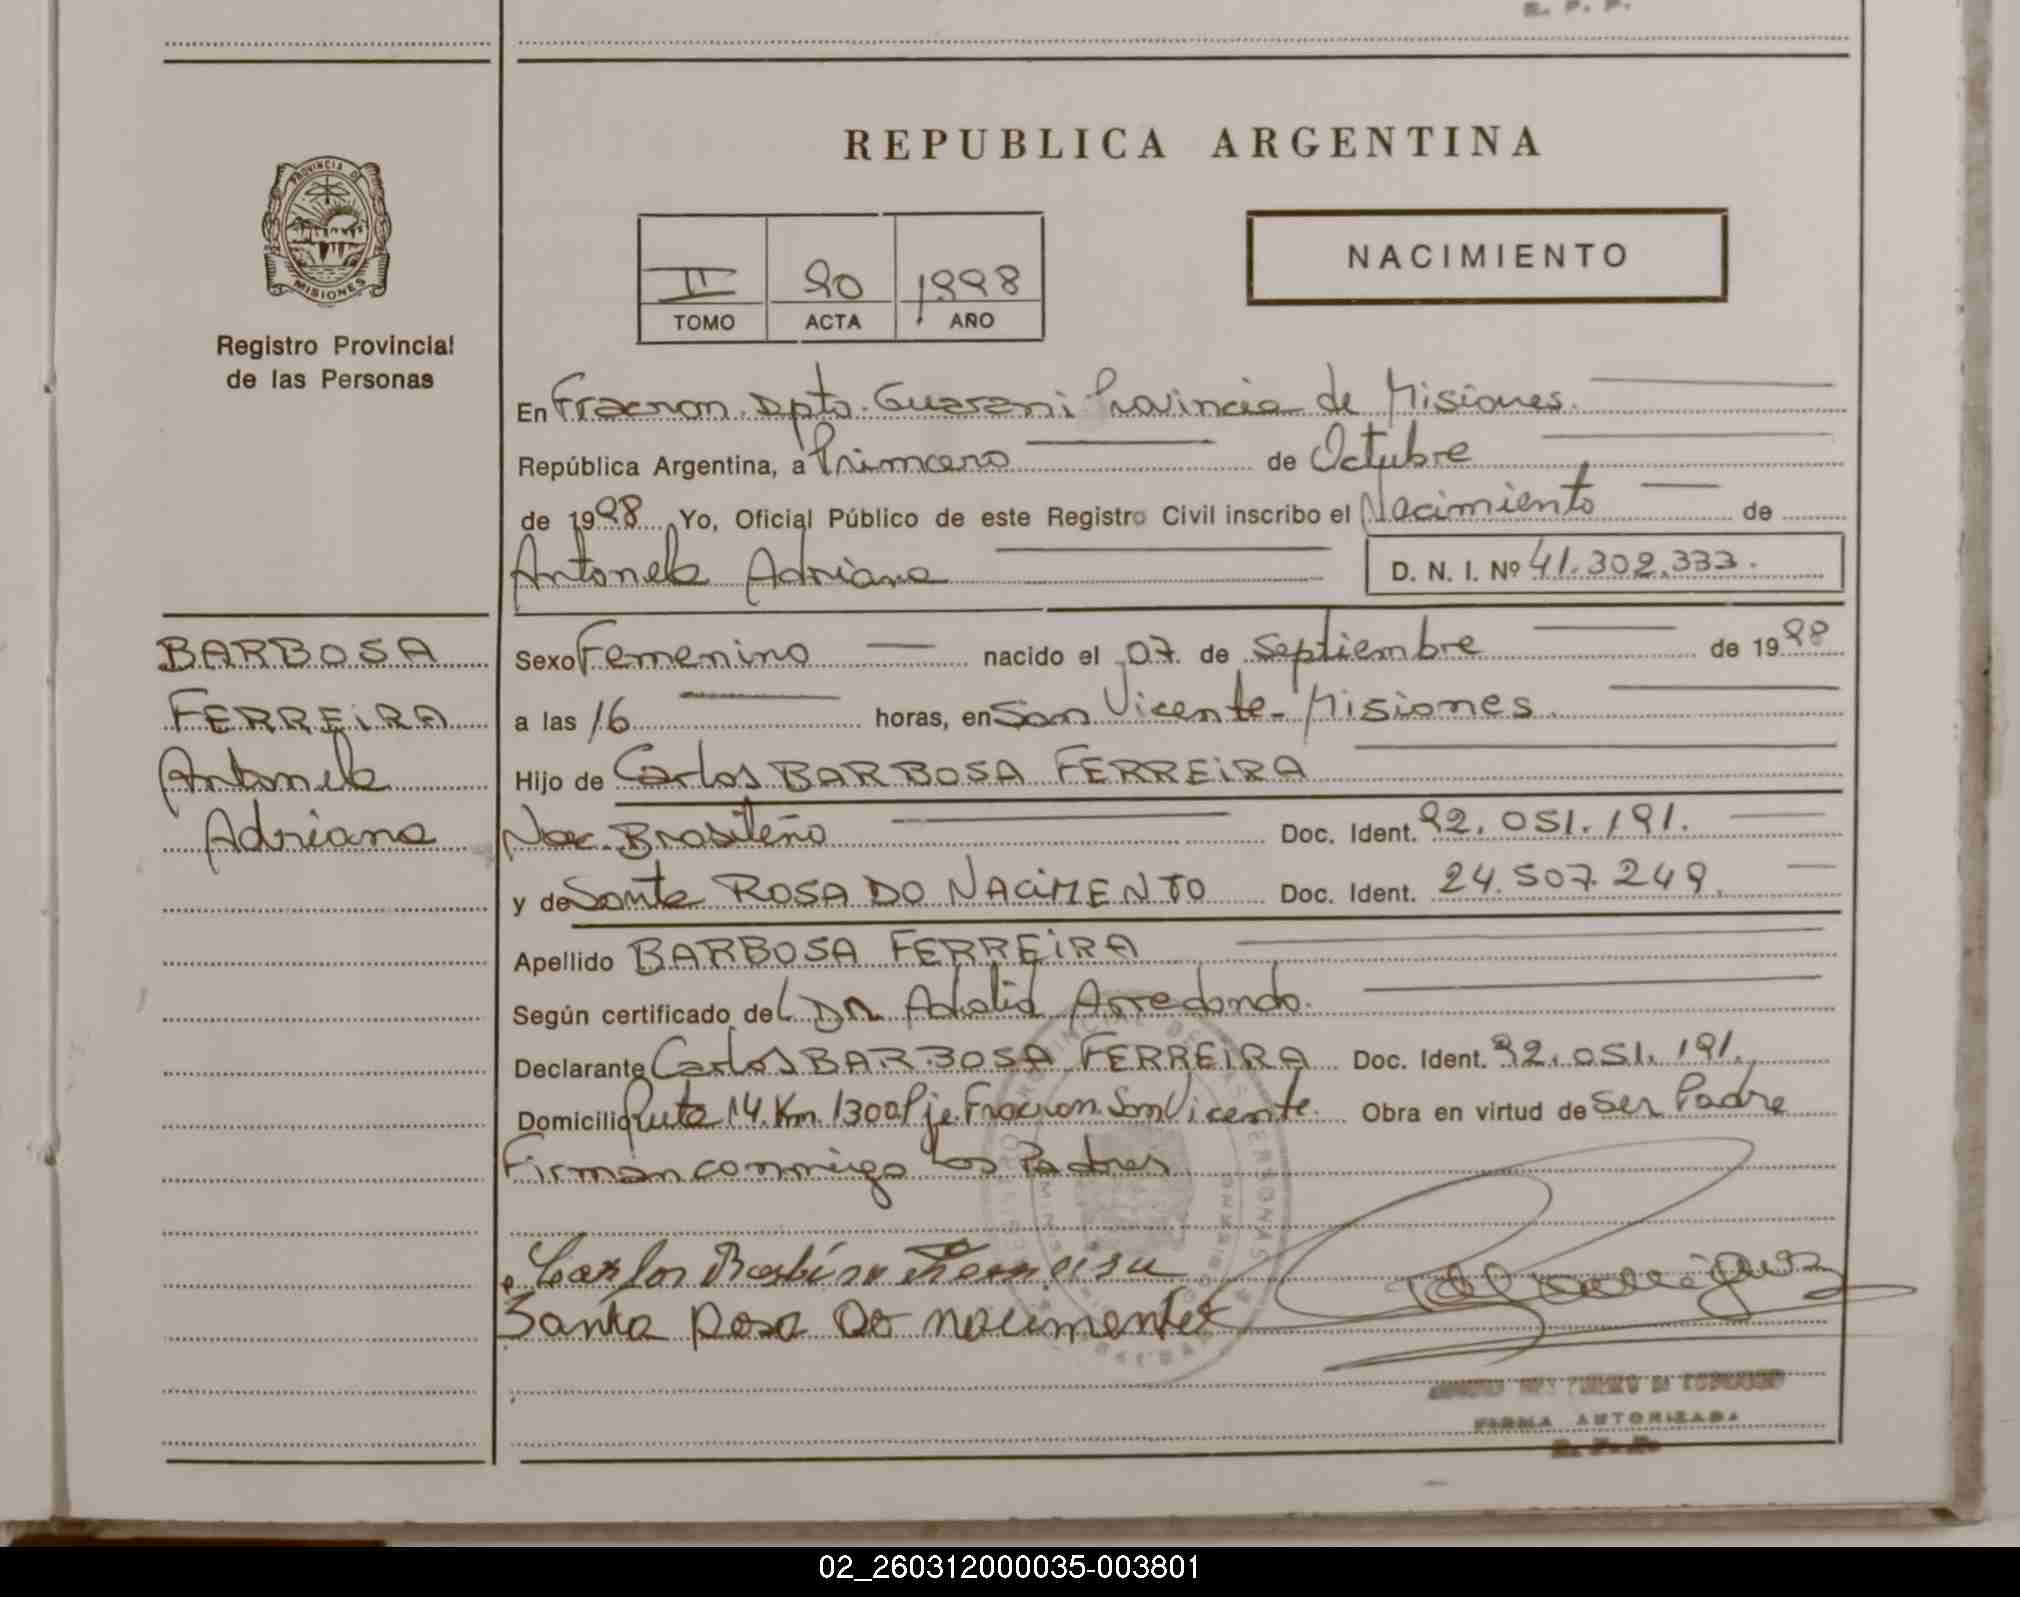 R. P. P.
REPUBLICA ARGENTINA
PROVINCIA DE
MISIONES
Registro Provincial
de las Personas
II 90 1998
TOMO ACTA AÑO
NACIMIENTO
En Fracron. Dpto. Guarani Provincia de Misiones.
República Argentina, a Primero de Octubre
de 1998 Yo, Oficial Público de este Registro Civil inscribo el Nacimiento de
Antonela Adriana D. N. I. Nº 41.302.333.
BARBOSA
FERREIRA
Antonela
Adriana
Sexo Femenino nacido el 07. de Septiembre de 1998
a las 16 horas, en San Vicente - Misiones.
Hijo de Carlos BARBOSA FERREIRA
Nac. Brasileño Doc. Ident. 92.051.191.
y de Santa ROSA DO NACIMENTO Doc. Ident. 24.507.249.
Apellido BARBOSA FERREIRA
Según certificado del DR Arredondo.
Declarante Carlos BARBOSA FERREIRA Doc. Ident. 92.051.191.
Domicilio Ruta 14. Km. 1300 Pje. Fracron. San Vicente. Obra en virtud de Ser Padre
Firman conmigo los Padres
Carlos Barbosa Ferreira
Santa Rosa do nacimento
FIRMA AUTORIZADA
R. P. P.
02_260312000035-003801